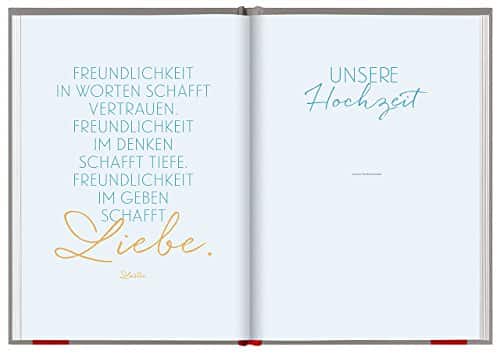 FREUNDLICHKEIT
IN WORTEN SCHAFFT
VERTRAUEN.
FREUNDLICHKEIT
IM DENKEN
SCHAFFT TIEFE.
FREUNDLICHKEIT
IM GEBEN
SCHAFFT
Liebe.
Laotse
UNSERE
Hochzeit